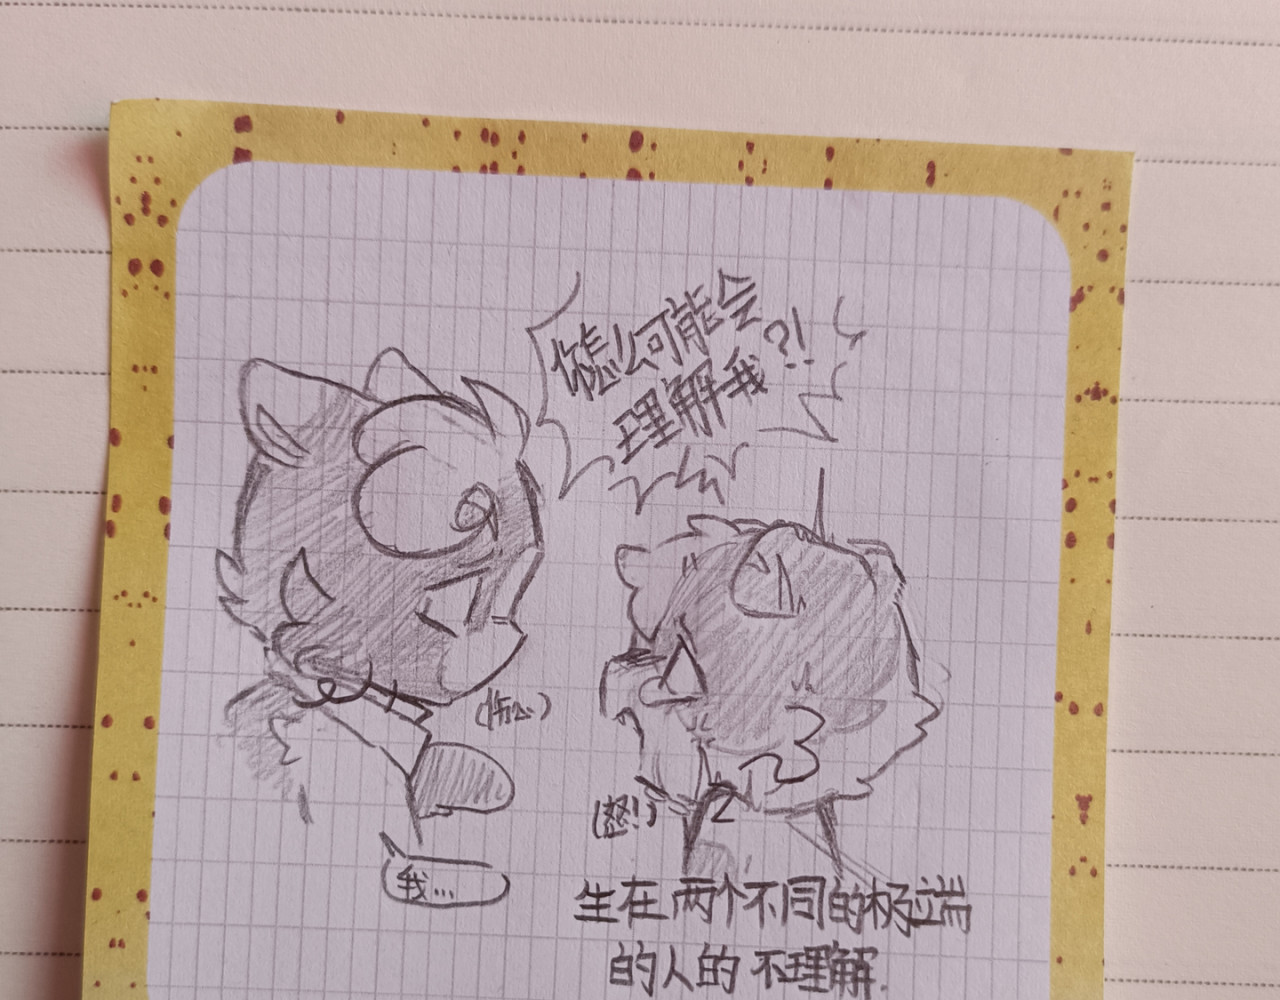 你怎么可能会
理解我?!
(怒!)
我...
生在两个不同的极端
的人的不理解.